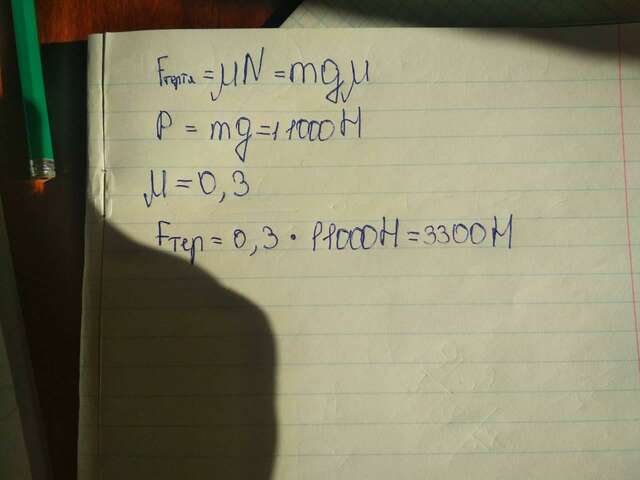 Fтертя = μN = mgμ
P = mg = 11000H
μ = 0,3
Fтер = 0,3 • 11000H = 3300H